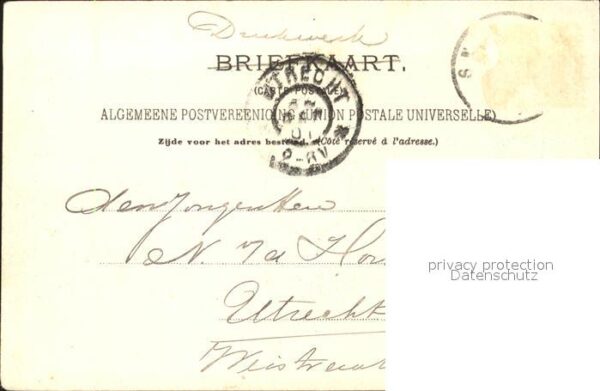 Drukwerk
BRIEFKAART.
(CARTE POSTALE)
UTRECHT
ALGEMEENE POSTVEREENIGING (UNION POSTALE UNIVERSELLE)
Zijde voor het adres bestemd. (Côté réservé à l'adresse.)
den Jongenheer
N. v d
Utrecht
privacy protection
Datenschutz